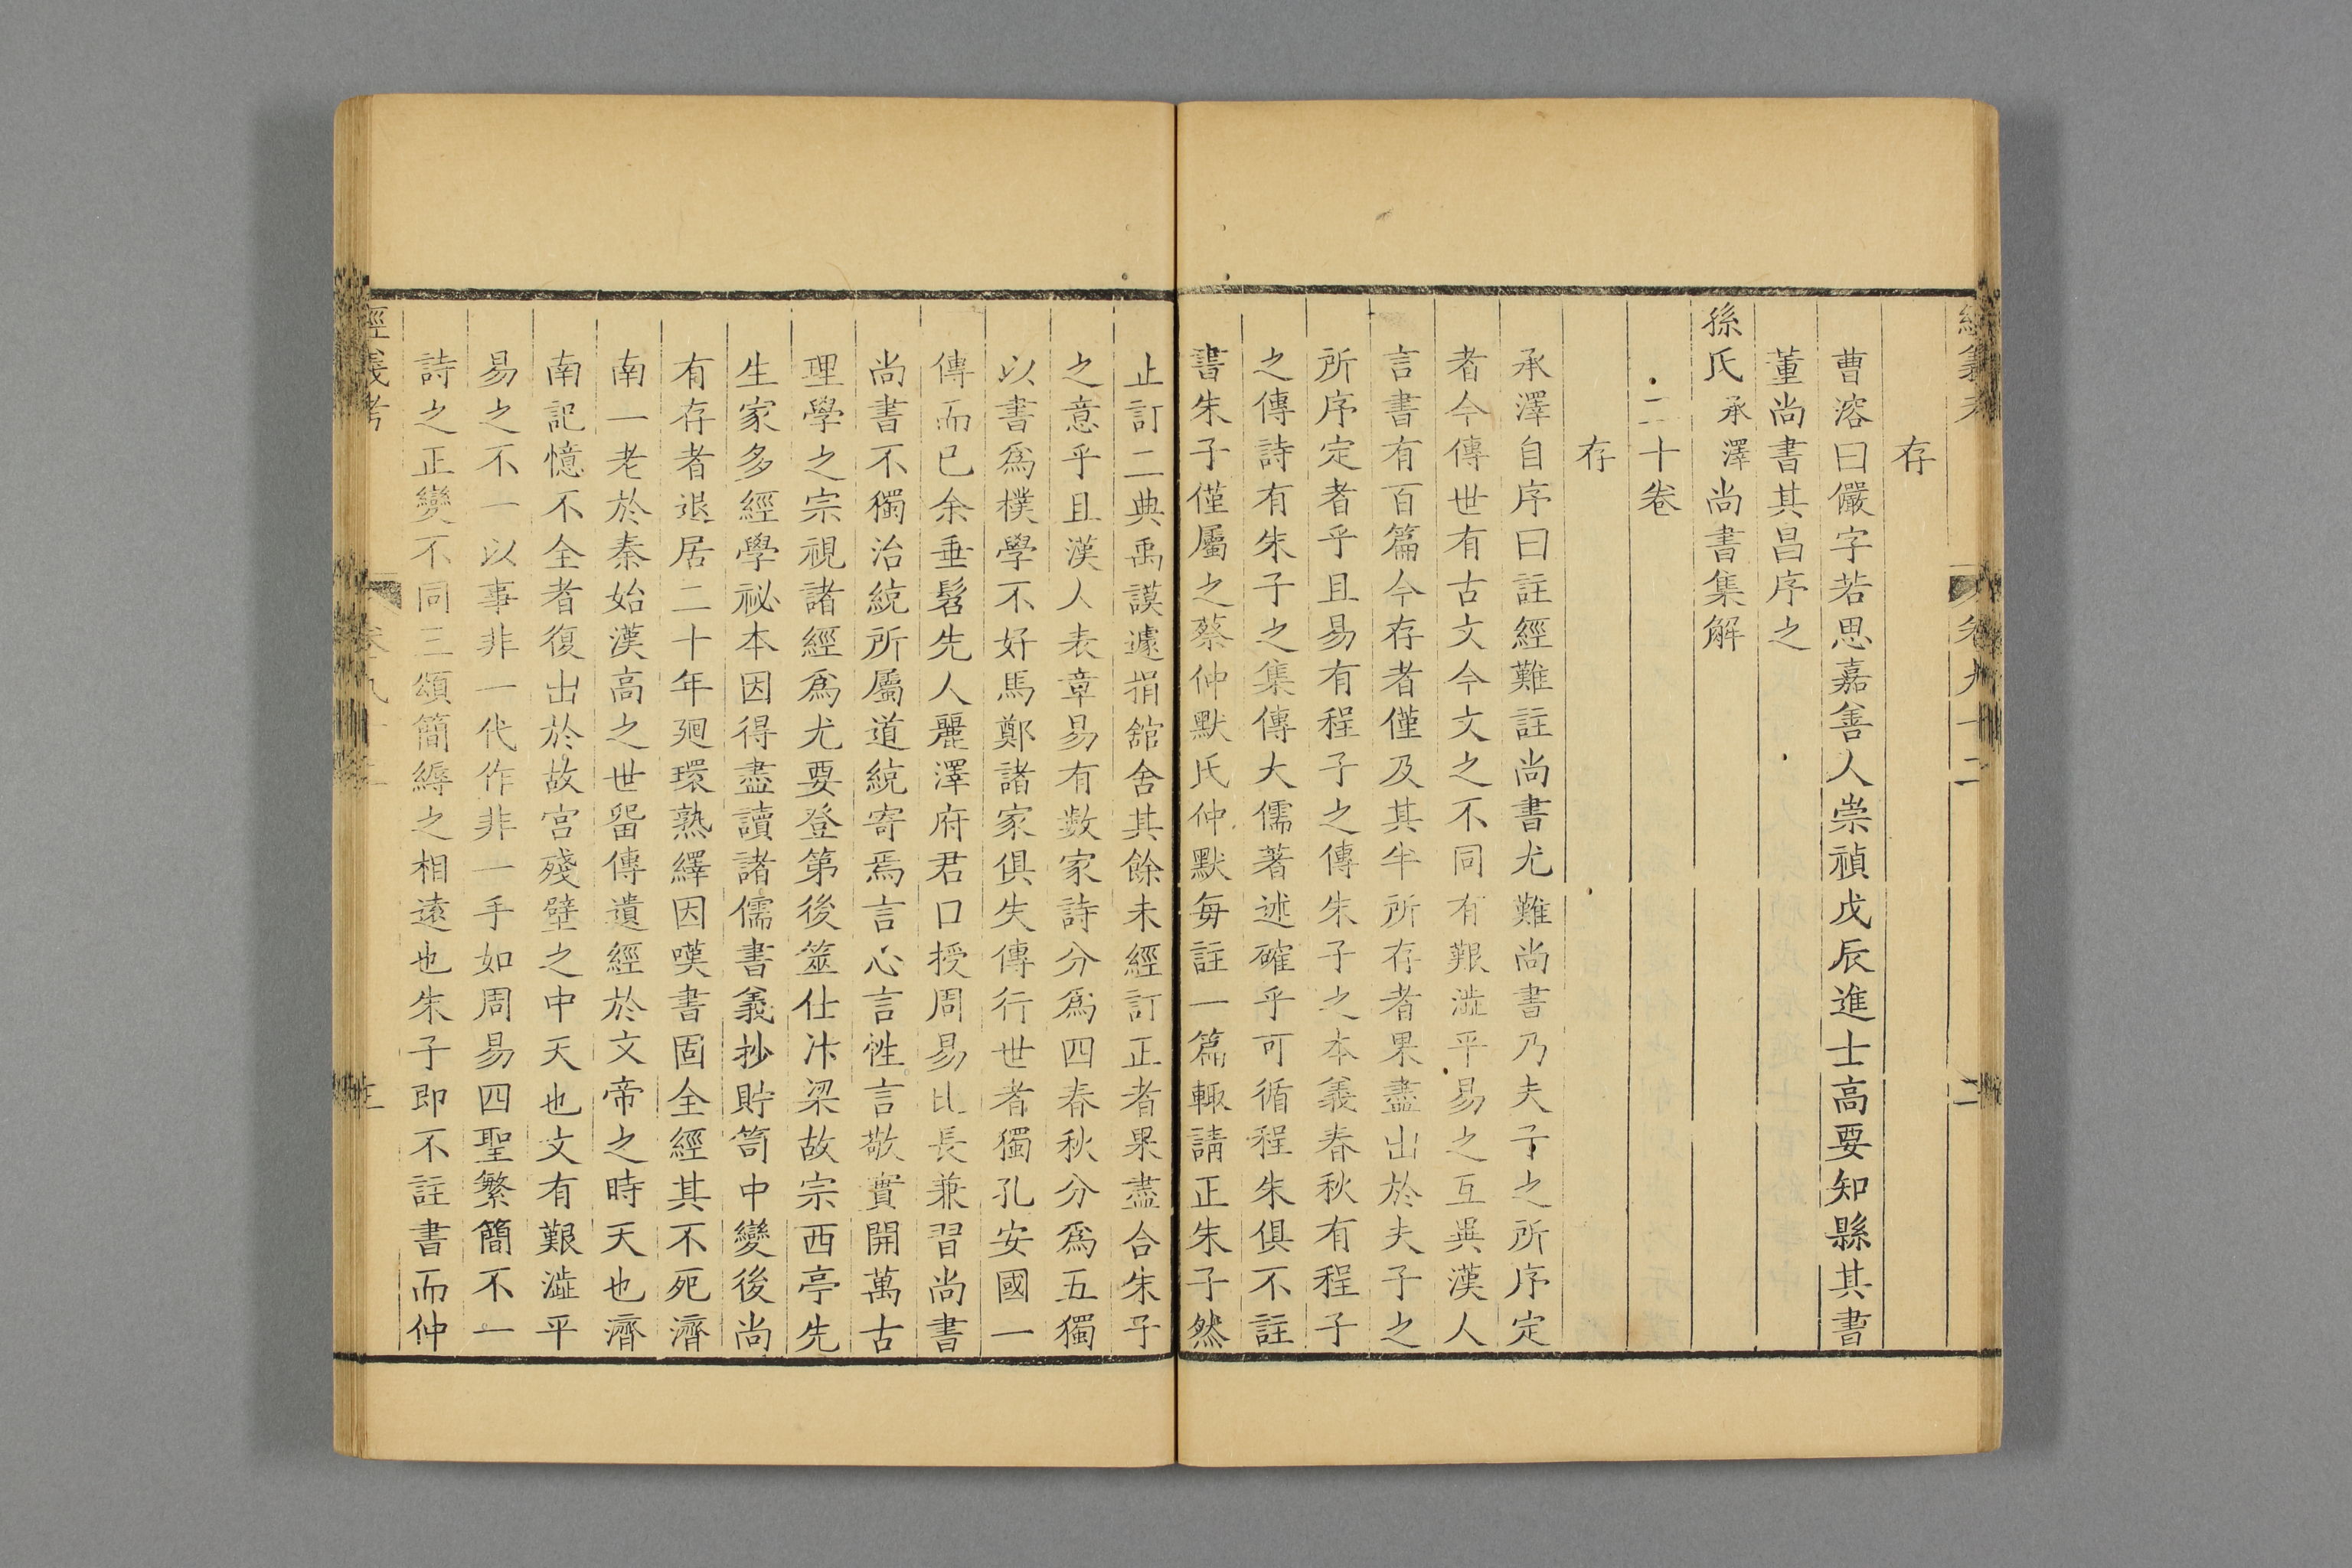 存
曹溶曰儼字若思嘉善人崇禎戊辰進士高要知縣其書
董尚書其昌序之
孫氏承澤尚書集解
二十卷
存
承澤自序曰註經難註尚書尤難尚書乃夫子之所序定
者今傳世有古文今文之不同有艱澁平易之互異漢人
言書有百篇今存者僅及其半所存者果盡出於夫子之
所序定者乎且易有程子之傳朱子之本義春秋有程子
之傳詩有朱子之集傳大儒著述確乎可循程朱俱不註
書朱子僅屬之蔡仲默氏仲默每註一篇輙請正朱子然
止訂二典禹謨遽捐舘舍其餘未經訂正者果盡合朱子
之意乎且漢人表章易有數家詩分爲四春秋分爲五獨
以書爲樸學不好馬鄭諸家俱失傳行世者獨孔安國一
傳而已余垂髫先人麗澤府君口授周易比長兼習尚書
尚書不獨治統所屬道統寄焉言心言性言敬實開萬古
理學之宗視諸經爲尤要登第後筮仕汴梁故宗西亭先
生家多經學祕本因得盡讀諸儒書義抄貯笥中變後尚
有存者退居二十年廻環熟繹因嘆書固全經其不死濟
南一老於秦始漢高之世畱傳遺經於文帝之時天也濟
南記憶不全者復出於故宫殘壁之中天也文有艱澁平
易之不一以事非一代作非一手如周易四聖繁簡不一
詩之正變不同三頌簡縟之相遠也朱子即不註書而仲
經義考